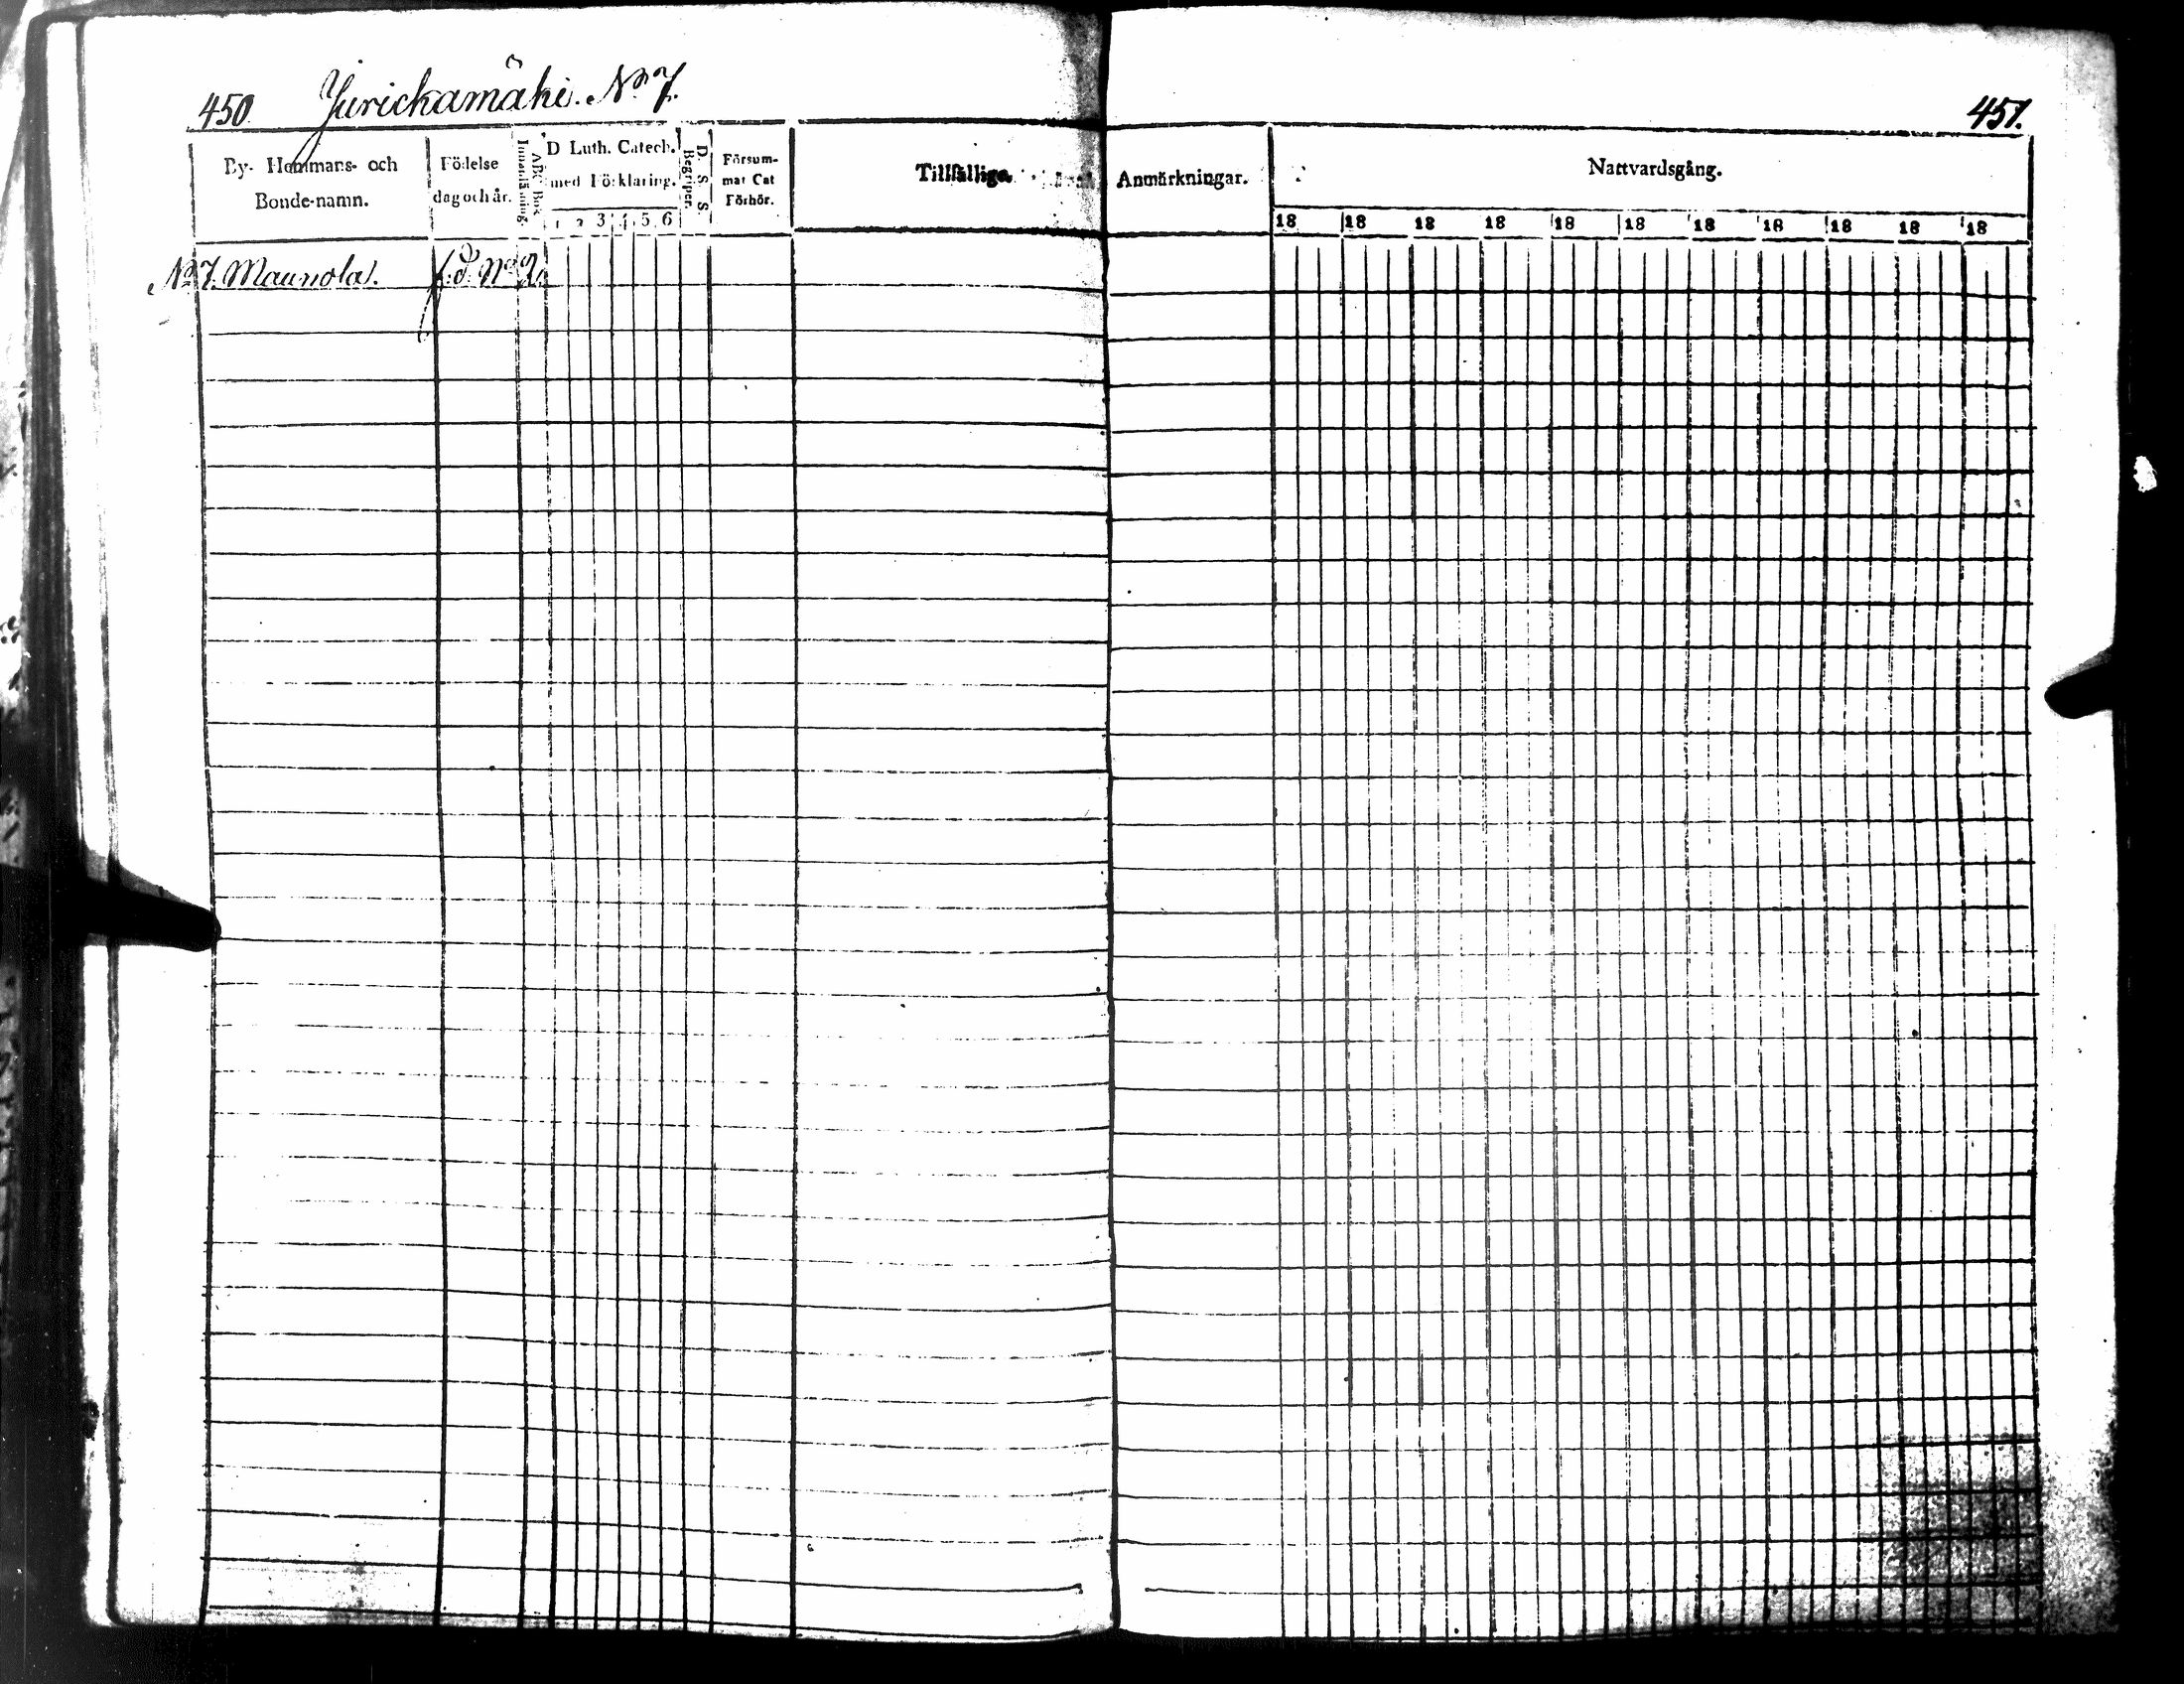 450. Jurickamäki. No 7.
451.
By- Hemmans- och Bonde-namn.
Födelse dag och år.
Innanläsning.
ABC Bok
D Luth. Catech. med Förklaring.
1 2 3 4 5 6
D. S. S. Begriper.
Försum-mat Cat Förhör.
Tillfällige
Anmärkningar.
Nattvardsgång.
18 18 18 18 18 18 18 18 18 18 18
No 7. Maunola. f.d. No 2.